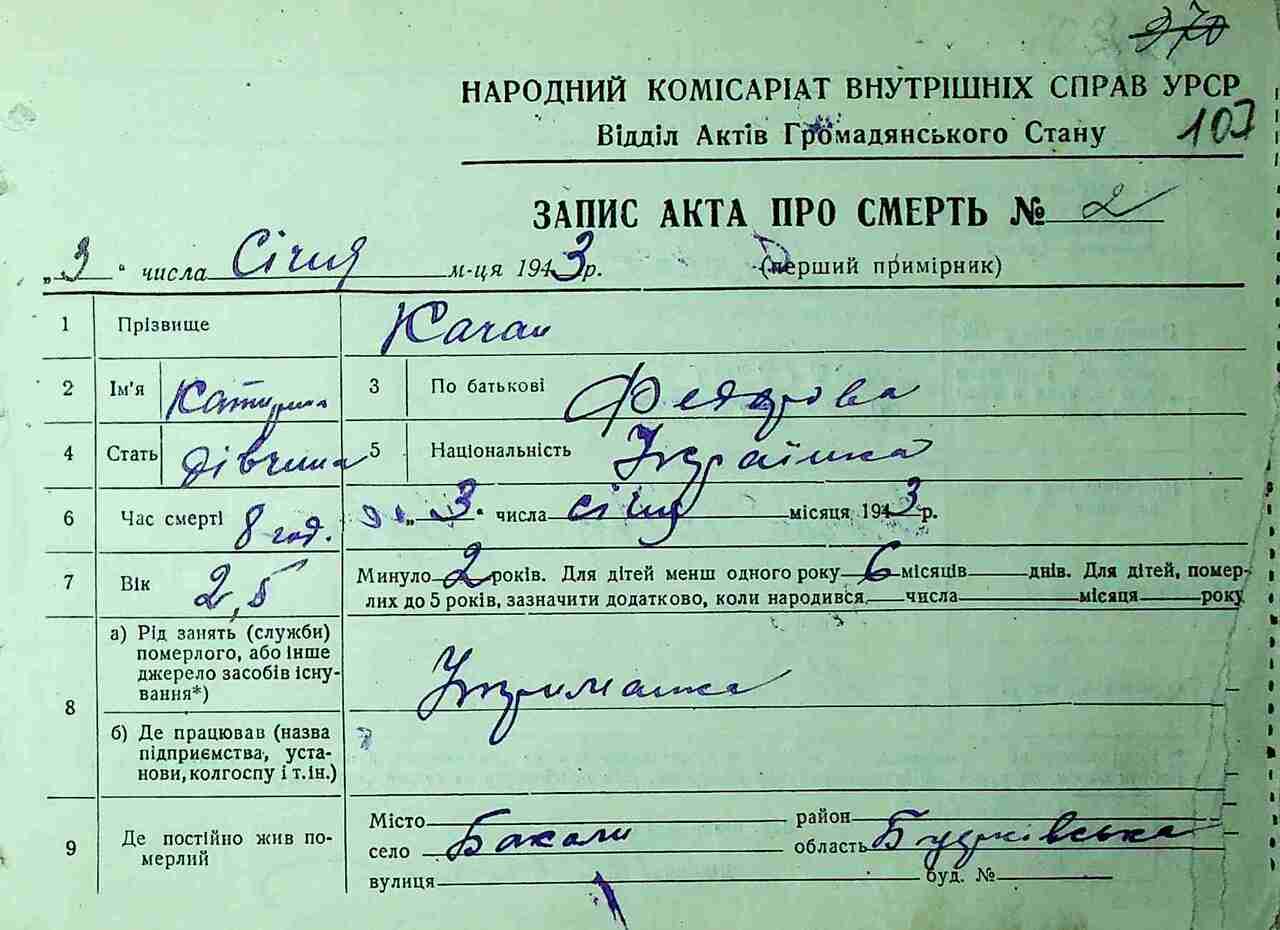 270
НАРОДНИЙ КОМІСАРІАТ ВНУТРІШНІХ СПРАВ УРСР
Відділ Актів Громадянського Стану 103
ЗАПИС АКТА ПРО СМЕРТЬ № 2
„ 3 " числа Січня м-ця 1943 р. (перший примірник)
1 Прізвище Качан
2 Ім'я Катерина 3 По батькові Федорова
4 Стать дівчина 5 Національність Українка
6 Час смерті 8 год. „ 3 " числа січня місяця 1943 р.
7 Вік 2,5 Минуло 2 років. Для дітей менш одного року 6 місяців днів. Для дітей, помер-
лих до 5 років, зазначити додатково, коли народився числа місяця року
8 а) Рід занять (служби)
померлого, або інше
джерело засобів існу-
вання*) Утриманка
б) Де працював (назва
підприємства, уста-
нови, колгоспу і т.ін.)
9 Де постійно жив по-
мерлий
Місто район
село область
вулиця буд. №